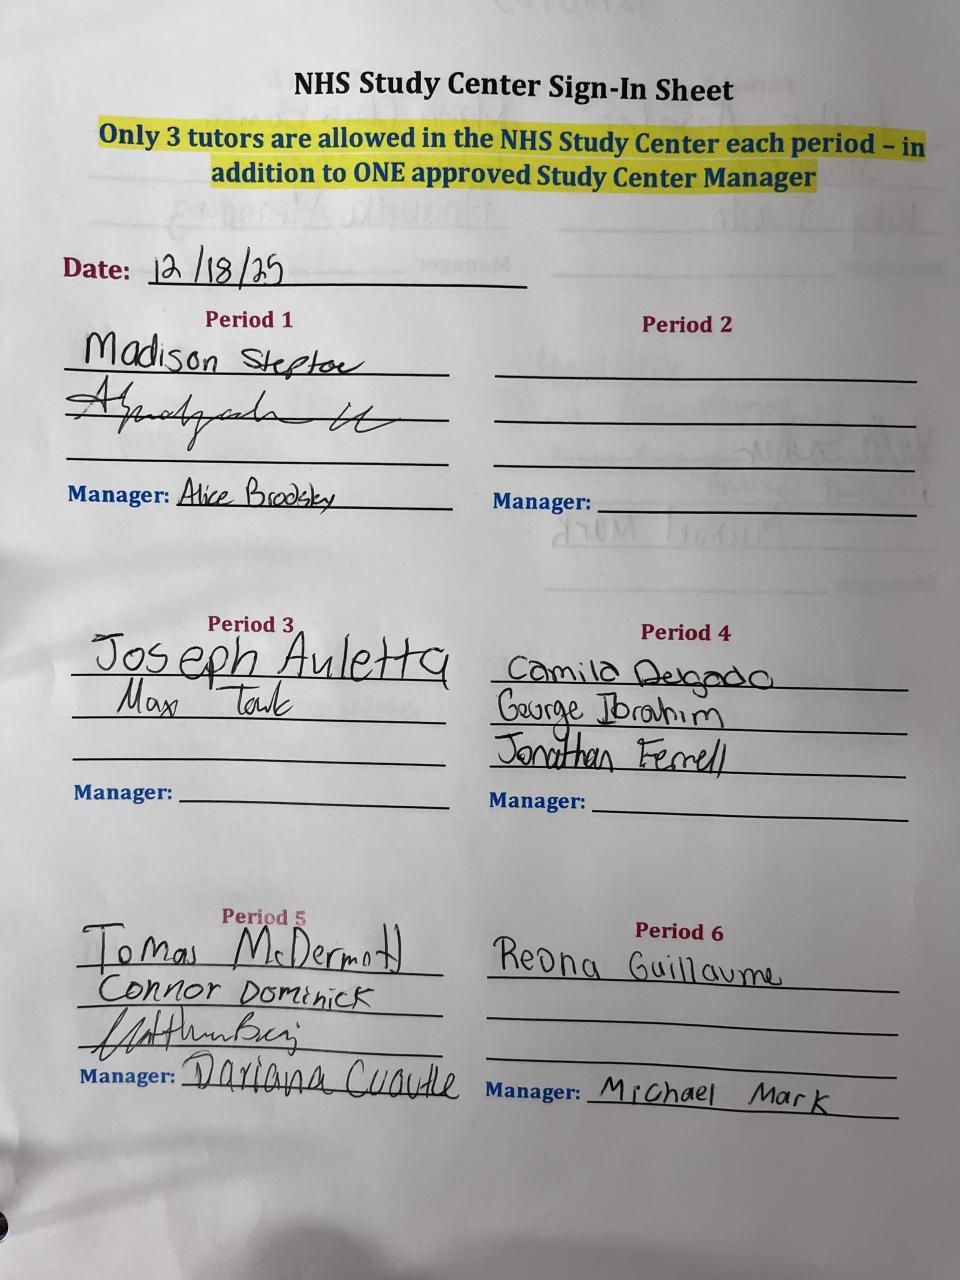 NHS Study Center Sign-In Sheet
Only 3 tutors are allowed in the NHS Study Center each period – in
addition to ONE approved Study Center Manager
Date: 12/18/25
Period 1
Madison Steptoe
Manager: Alice Brodsky
Period 2
Manager:
Period 3
Joseph Auletta
Max
Manager:
Period 4
Camila Delgado
George Ibrahim
Jonathan Ferrell
Manager:
Period 5
Tomas McDermott
Connor Dominick
Manager: Dariana Cuautle
Period 6
Reona Guillaume
Manager: Michael Mark